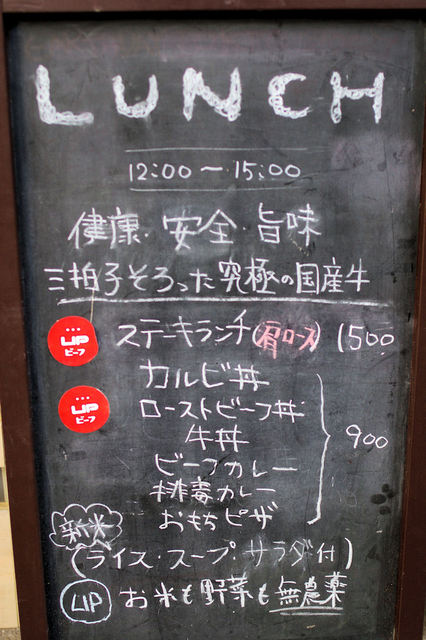 LUNCH
12:00〜15:00
健康・安全・旨味
三拍子そろった究極の国産牛
UP ビーフ ステーキランチ(肩ロース) 1500
カルビ丼
UP ビーフ ローストビーフ丼
牛丼 900
ビーフカレー
排毒カレー
おもちピザ
新米
(ライス・スープ・サラダ付)
UP お米も野菜も無農薬